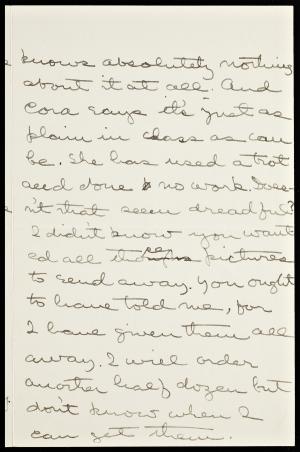 knows absolutely nothing
about it at all. And
Cora says it's just as
plain in class as can
be. She has used a trot
and done no work. Does-
n't that seem dreadful?
I didn't know you want
ed all those pictures
to send away. You ought
to have told me, for
I have given them all
away. I will order
another half dozen but
don't know when I
can get them.